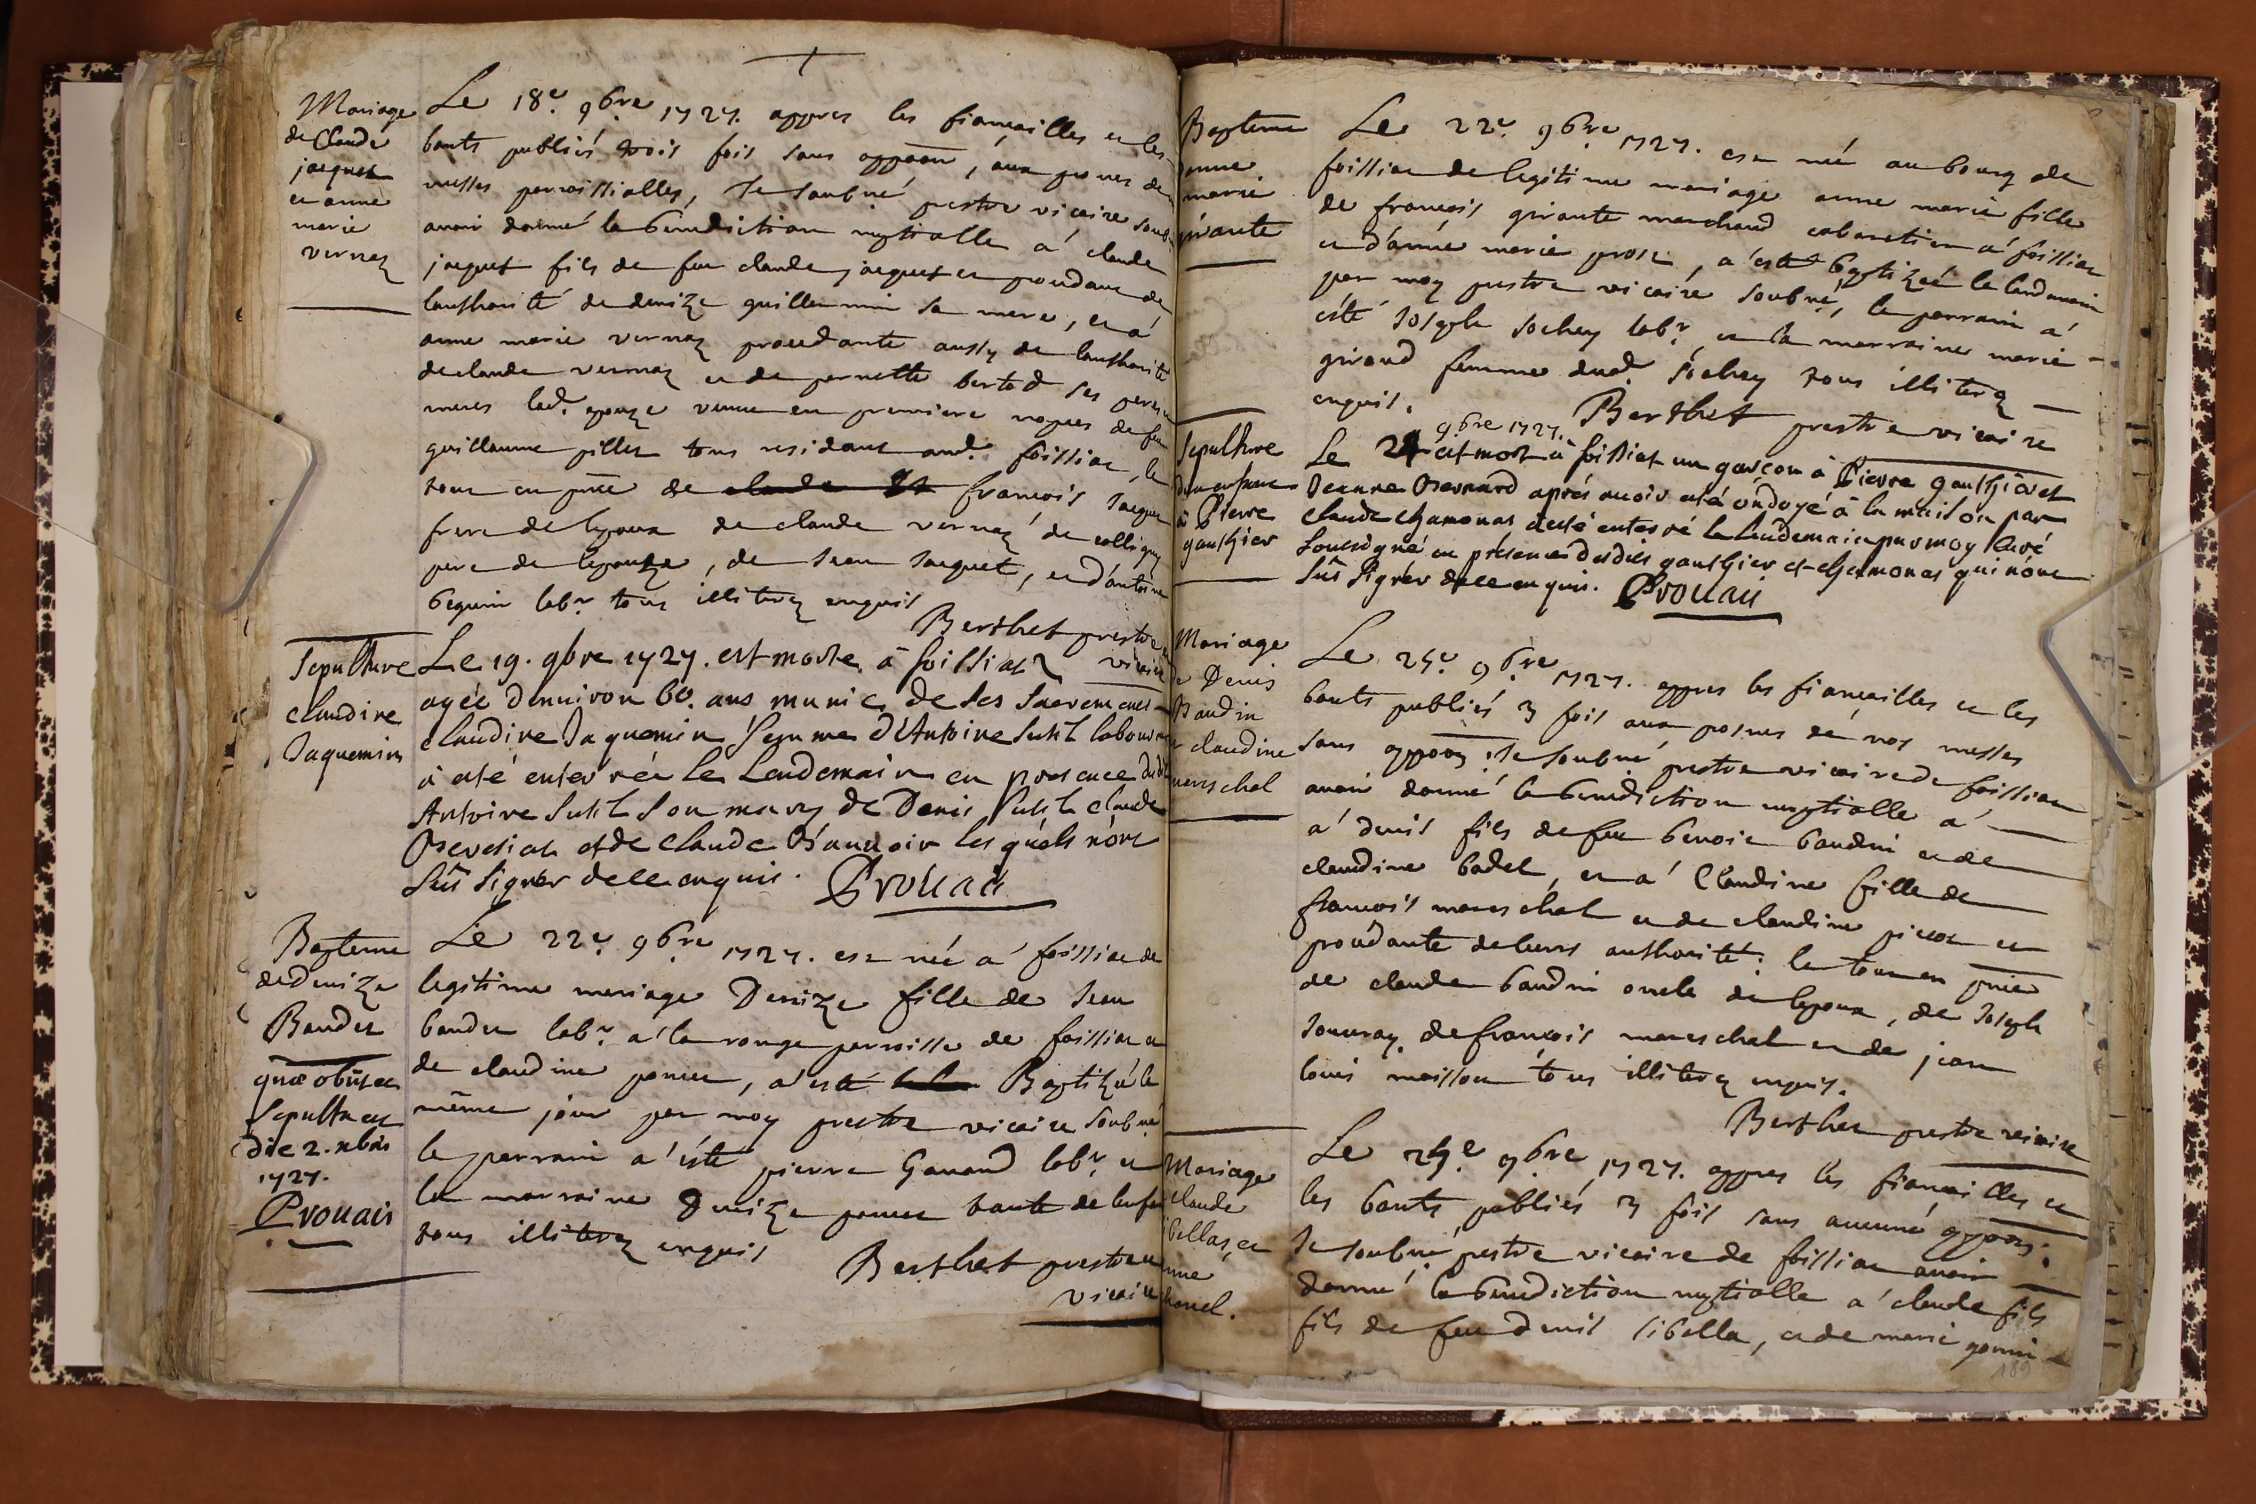 Mariage
de Claude
jacquet
et anne
marie
vernaz
Le 18e. 9bre 1727. appres les fiancailles et les
bants publiés trois fois sans appoon, aux prones de
messes parroissialles, Je soubné prestre vicaire soub
avoir donné la benediction nuptialle a claude
jacquet fils de feu claude jacquet et procedant de
lauthorité de denize guillemin sa mere, et a
anne marie vernaz procedante aussy de lauthorité
de claude vernaz et de pernette bertod ses pere et
meres lad. epouze venue en premiere nopces de feu
guillaume pillet tous residant aud. foissiat, le
tout en pnce de claude et francois Jacquet
frere de lepoux de claude vernaz de colligny
pere de lepouze, de Jean Jacquet, et d'antoine
beguin labr. tous illiterez enquis
Berthet prestre
vicaire
Sepulture
claudine
Jaquemin
Le 19. 9bre 1727. est morte à foissiat
agée d'enuiron 60. ans munie de ses sacremens
claudine Jaquemin femme d'Antoine Subtil laboureur
à eté enterrée le Lendemain en presence dudit
Antoine Subtil son mary de Denis Subtil claude
Brevesiat et de claude Bauuoir les quels n'ont
sceu signer de ce enquis. Prouais
Bapteme
de Denize
Baudet
quæ obiit et
sepulta est
die 2. xbris
1727.
Prouais
Le 22e. 9bre 1727. est née a foissiat de
legitime mariage Denize fille de Jean
baudet labr. a la rouge parroisse de foissiat et
de claudine poncet, a esté Baptizé le
même jour par moy prestre vicaire soubné
le parrain a esté pierre Gavand labr. et
la marraine Denize poncet tante de lenfant
tous illiterez enquis
Berthet prestre
vicaire
Bapteme
anne
marie
girante
Le 22e. 9bre 1727. est né au bourg de
foissiat de legitime mariage anne marie fille
de francois girante marchand cabaretier a foissiat
et d'anne marie prost, a esté baptizée le landemain
par moy prestre vicaire soubné, le parrain a
esté Joseph sochay labr. et la marraine marie
giroud femme dud. sochay tous illiterez
enquis.
Berthet prestre vicaire
Sepulture
d'un enfant
à Pierre
gauthier
9bre 1727.
Le 24 est mort à foissiat un garçon à Pierre gauthier et
Jeanne Bernard aprés auoir eté ondoyé à la maison par
claude chamonas a eté enterré le lendemain par moy curé
soussigné en présence desdits gauthier et chamonas qui n'ont
sceu signer de ce enquis. Prouais
Mariage
de Denis
Baudin
et claudine
mareschal
Le 25e. 9bre 1727. appres les fiancailles et les
bants publiés 3 fois aux posnes de nos messes
sans appoon, Je soubné prestre vicaire de foissiat
avoir donné la benediction nuptialle a
a denis fils de feu benoit baudin et de
claudine badel, et a Claudine fille de
francois mareschal et de claudine picot et
procedante de leurs authorité; le tout en pnce
de claude baudin oncle de lepoux, de Joseph
Jouuray, de francois mareschal et de jean
louis moisson tous illiterez enquis.
Berthet prestre vicaire
Mariage
claude
sibellas, et
anne
Le 25e 9bre 1727. appres les fiancailles et
les bants publiés 3 fois sans aucune appoon.
Je soubné prestre vicaire de foissiat avoir
donné la benediction nuptialle a claude fils
fils de feu denis sibella, et de marie gonin
189